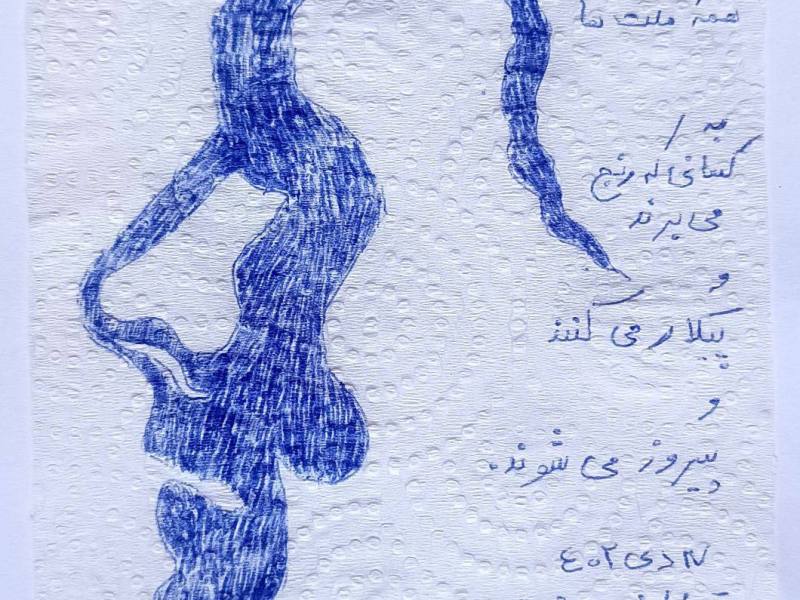 همه ملت ها
به
کسانی که رنج
می برند
و
پیکار می کنند
و
پیروز می شوند.
دی ۴۰۲